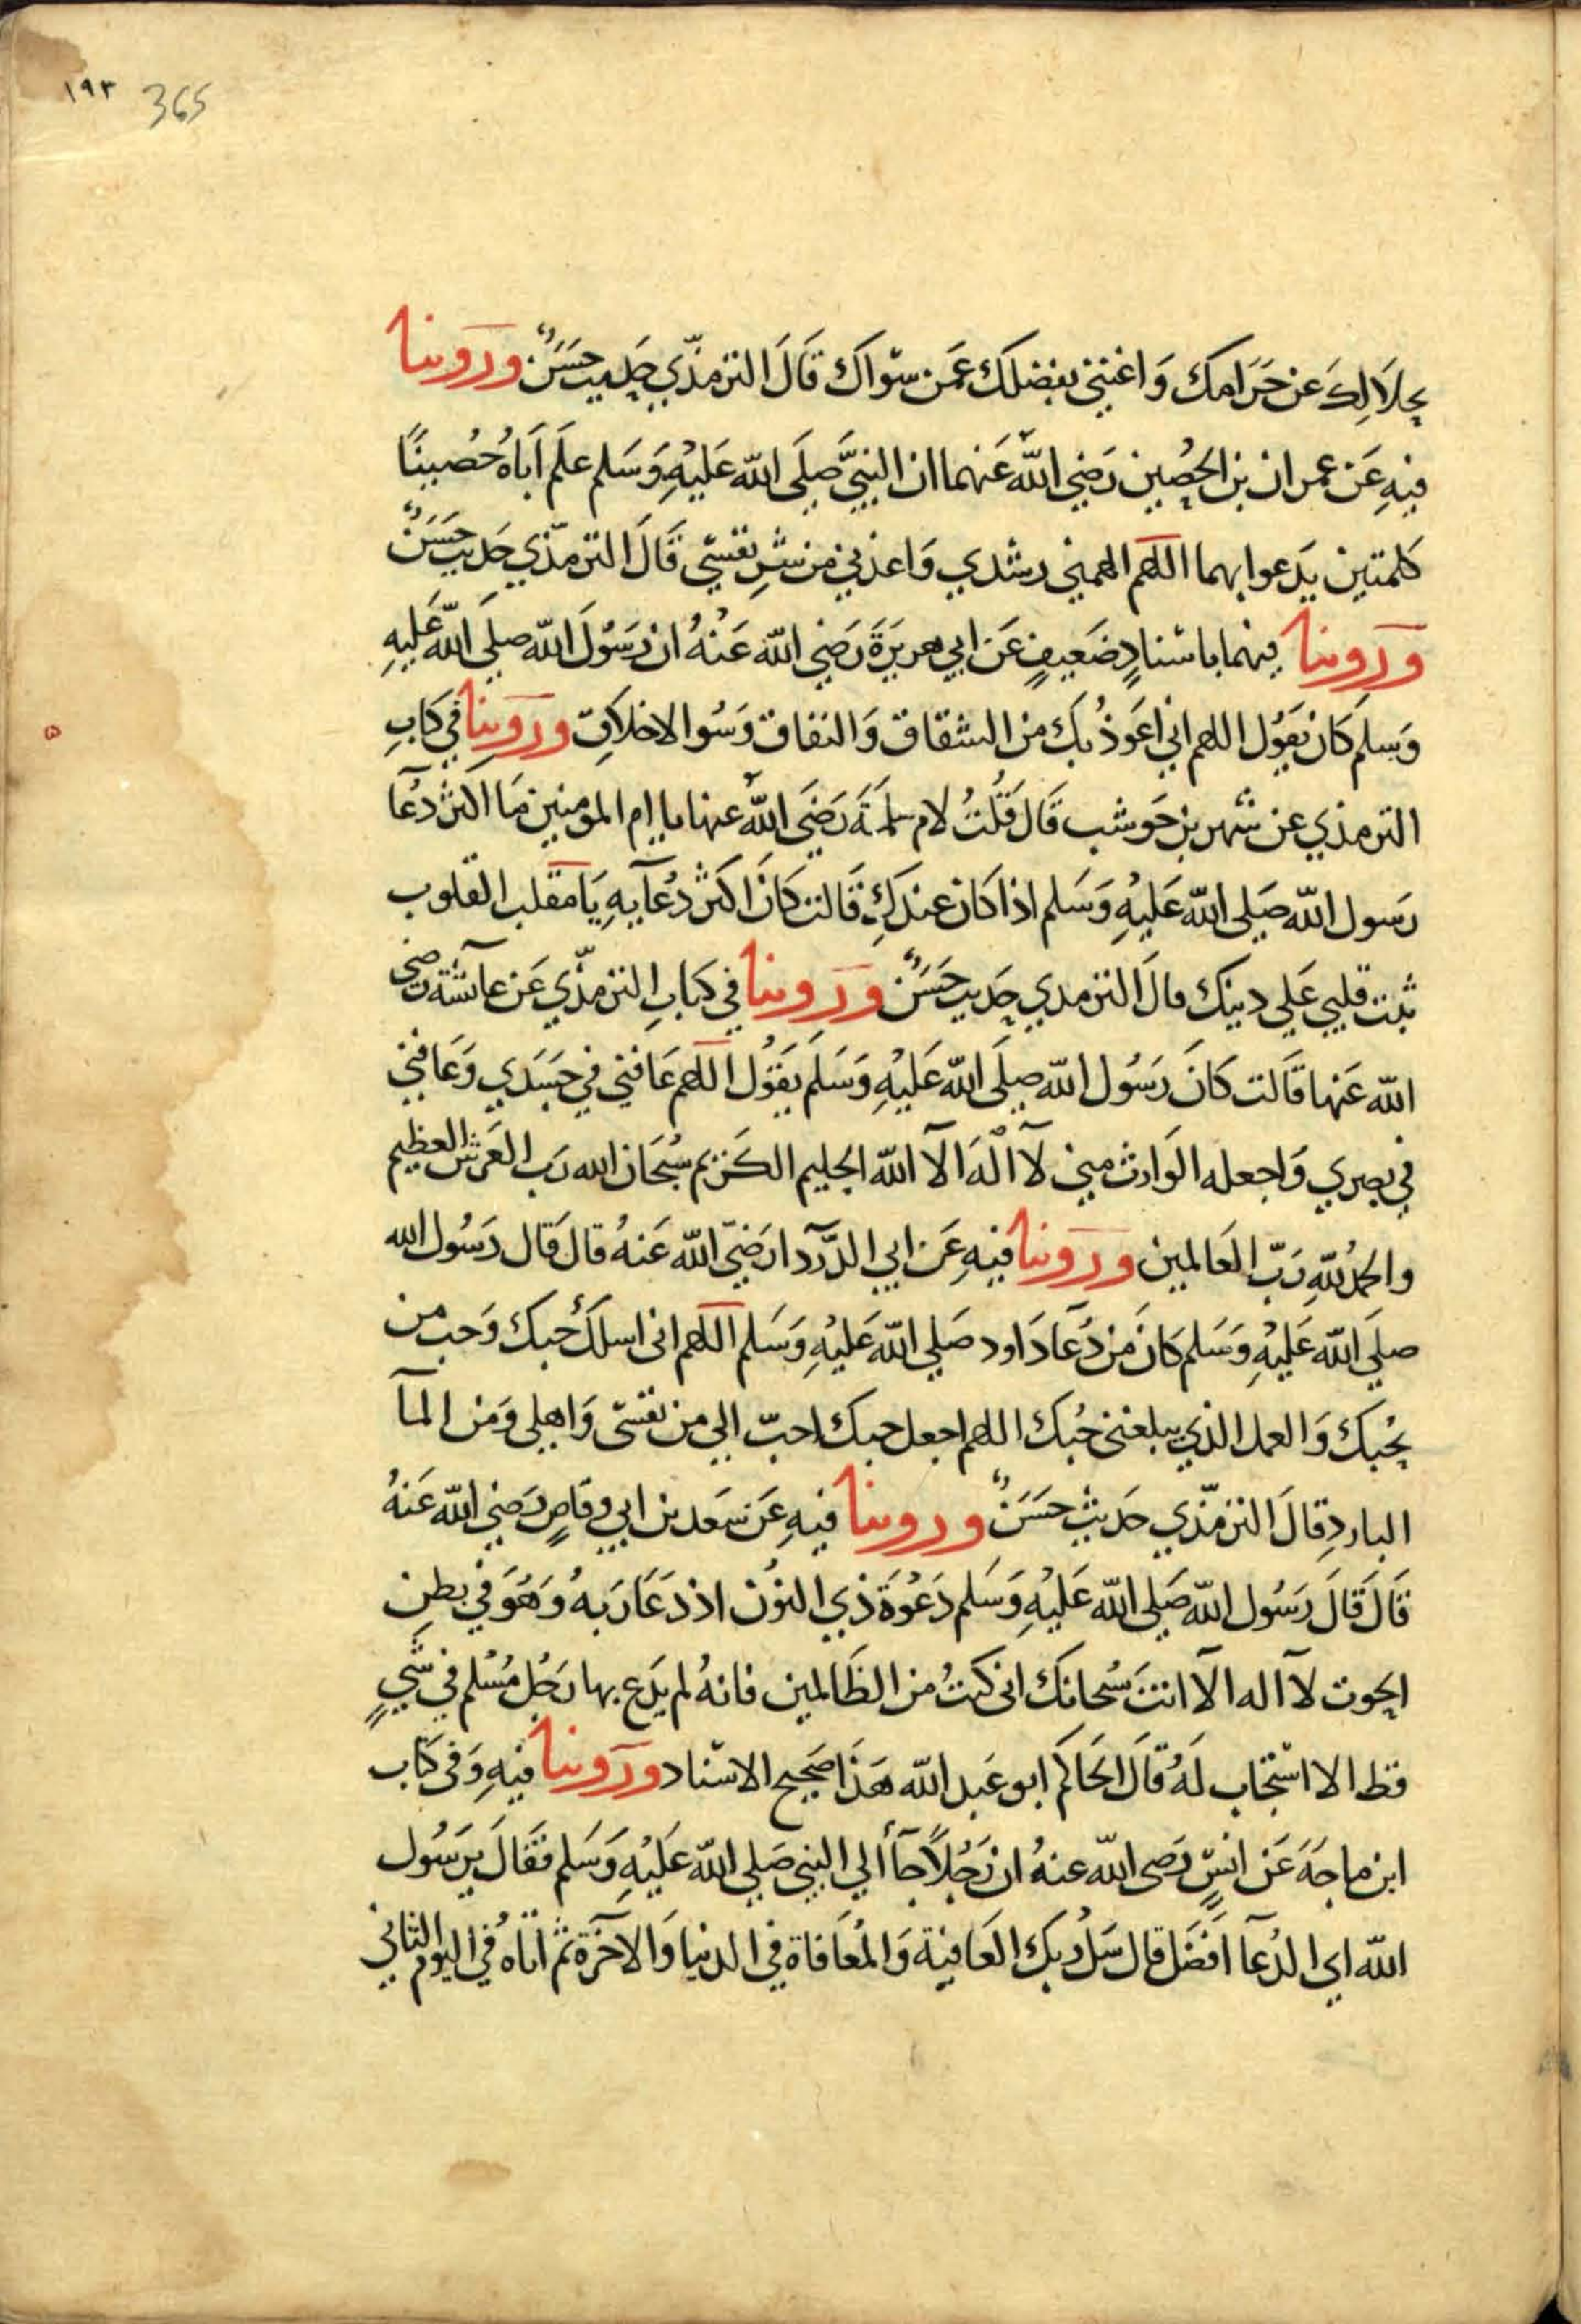 ١٩٣ 365
بحلَالِكَ عن حَرَامك وَاغنني بفضلكَ عَمَن سوَاكَ قَالَ الترمذّي حَديث حَسَنٌ ورَوينا
فيهِ عَن عمران بن الحُصِين رَضي اللّه عَنهما ان النبيَّ صَلَى اللّه عَليْهِ وَسَلم علَم اَبَاهُ حُصينًا
كلمتين يَدعوا بهما اللهم الهمني رشدي وَاعذني من شرِ نفسي قَالَ الترمذّي حَديث حَسَنٌ
ورَوينا فيهما باسنادٍ ضَعيفٍ عَن ابي هريرَةَ رَضي اللّه عَنْهُ ان رَسُولَ اللّه صلى اللّه عَليهِ
وَسلم كَان يَقُول اللهم اني اعَوذُ بكَ من الشقاق وَالنفاق وَسُوا الاخلاَقِ ورَوينا في كَابِ
الترمذي عن شهر بن حَوشب قَالَ قَلْتُ لام سلمَةَ رَضَي اللّه عنها يا ام المومنين مَا اكثر دُعَآ
رَسول اللّه صَلى اللّه عَليْهِ وَسَلم اذا كَان عندَكِ قَالت كَانَ اكثر دُعَآيهِ يَا مقلب القلوب
ثبت قلبي عَلي دينك قالَ الترمدي حَديث حَسَنٌ ورَوينا في كتابِ الترمذّي عَن عآئشة رَضي
اللّه عَنها قَالت كَانَ رَسُول اللّه صلَى اللّه عَليْهِ وَسَلَم يَقُول اللهم عَافني في جَسَدي وَعَافني
في بصري وَاجعله الوَارث مني لآ الْهَ الآ اللّه الحليم الكَريم سُبحَان الله رَب العَرش العظيم
والحمدُ للّهِ رَبّ العَالمين ورَوينا فيهِ عَن ابي الدَّرَدآ رَضيَ اللّه عَنهُ قالَ قَال رَسُول الله
صلَى اللّه عَليْهِ وَسَلم كَانَ مَن دُعَآ دَاود صَلي اللّه عَليْهِ وَسَلم اللهم اني اسلكَ حُبك وَحب من
يحُبك وَالعمل الذي يبلغني حُبك اللهم اجعل حبك احبّ الي من نفسي وَاهلي وَمَن المآ
الباردِ قالَ الترمذّي حَديث حَسَنٌ ورَوينا فيهِ عَن سَعَد بن ابي وقاصٍ رَضي اللّه عَنهُ
قَالَ قَالَ رَسُول اللّه صَلى اللّه عَليْهِ وَسَلم دَعُوَة ذي النوُن اذ دَعَا رَبهُ وَهُوَ في بطنِ
الحوت لآ اله الآ انتَ سُبحانكَ اني كنتُ من الظَالمين فانهُ لم يَدَع بها رَجُل مُسْلم في شَيٍ
قط الا استجاب لَهُ قَالَ الحَاكم ابو عَبد اللّه هَذَا صَحيح الاسناد ورَوينا فيهِ وَفي كَتاب
ابن ماجَهَ عَن انسٍ رَضي اللّه عنهُ ان رَجُلاً جَآ ألي النبي صَلي اللّه عَليْهِ وَسَلم فَقَالَ يرَسُول
اللّه اي الدُعَآ اَفضَل قال سَلْ ربكَ العَافية وَالمُعَافاة في الدنيا وَالآخرَة ثم اَتاهُ في اليوم الثاني